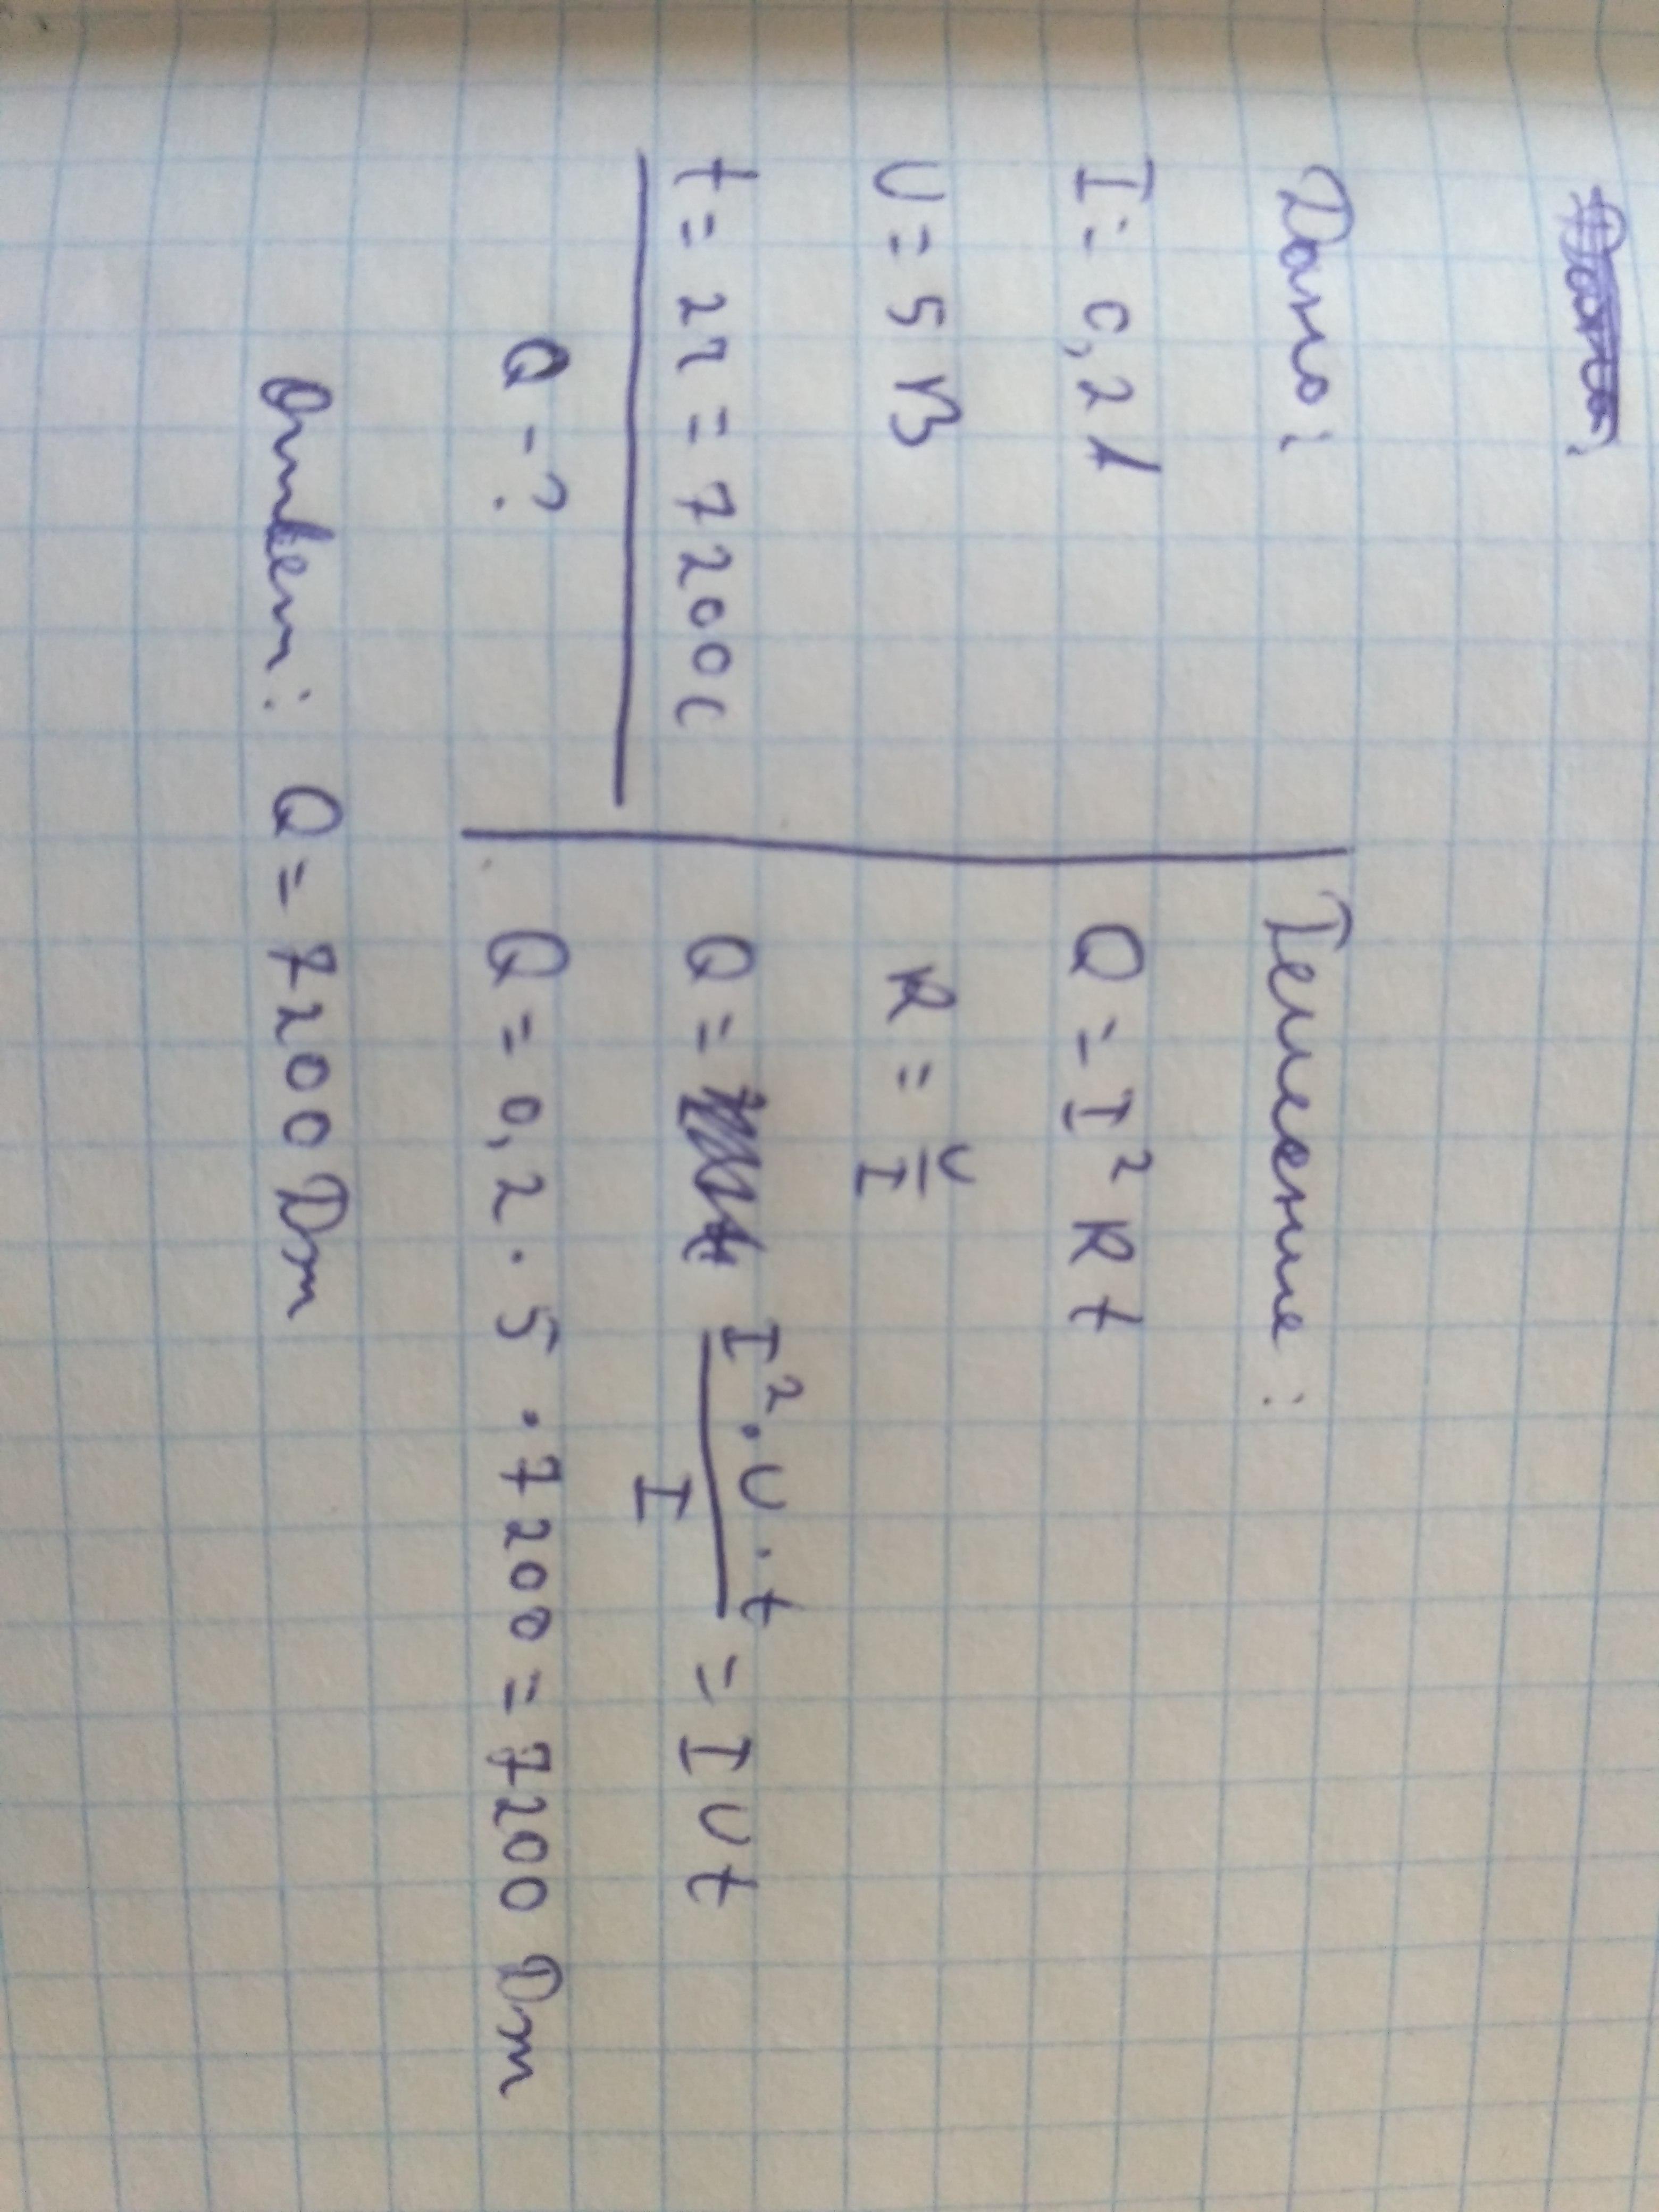 Дано:
I = 0,2 А
U = 5 В
t = 2ч = 7200с
Q - ?
Решение:
Q = I² R t
R = U/I
Q = I²·U·t/I = I U t
Q = 0,2 · 5 · 7200 = 7200 Дж
Ответ: Q = 7200 Дж